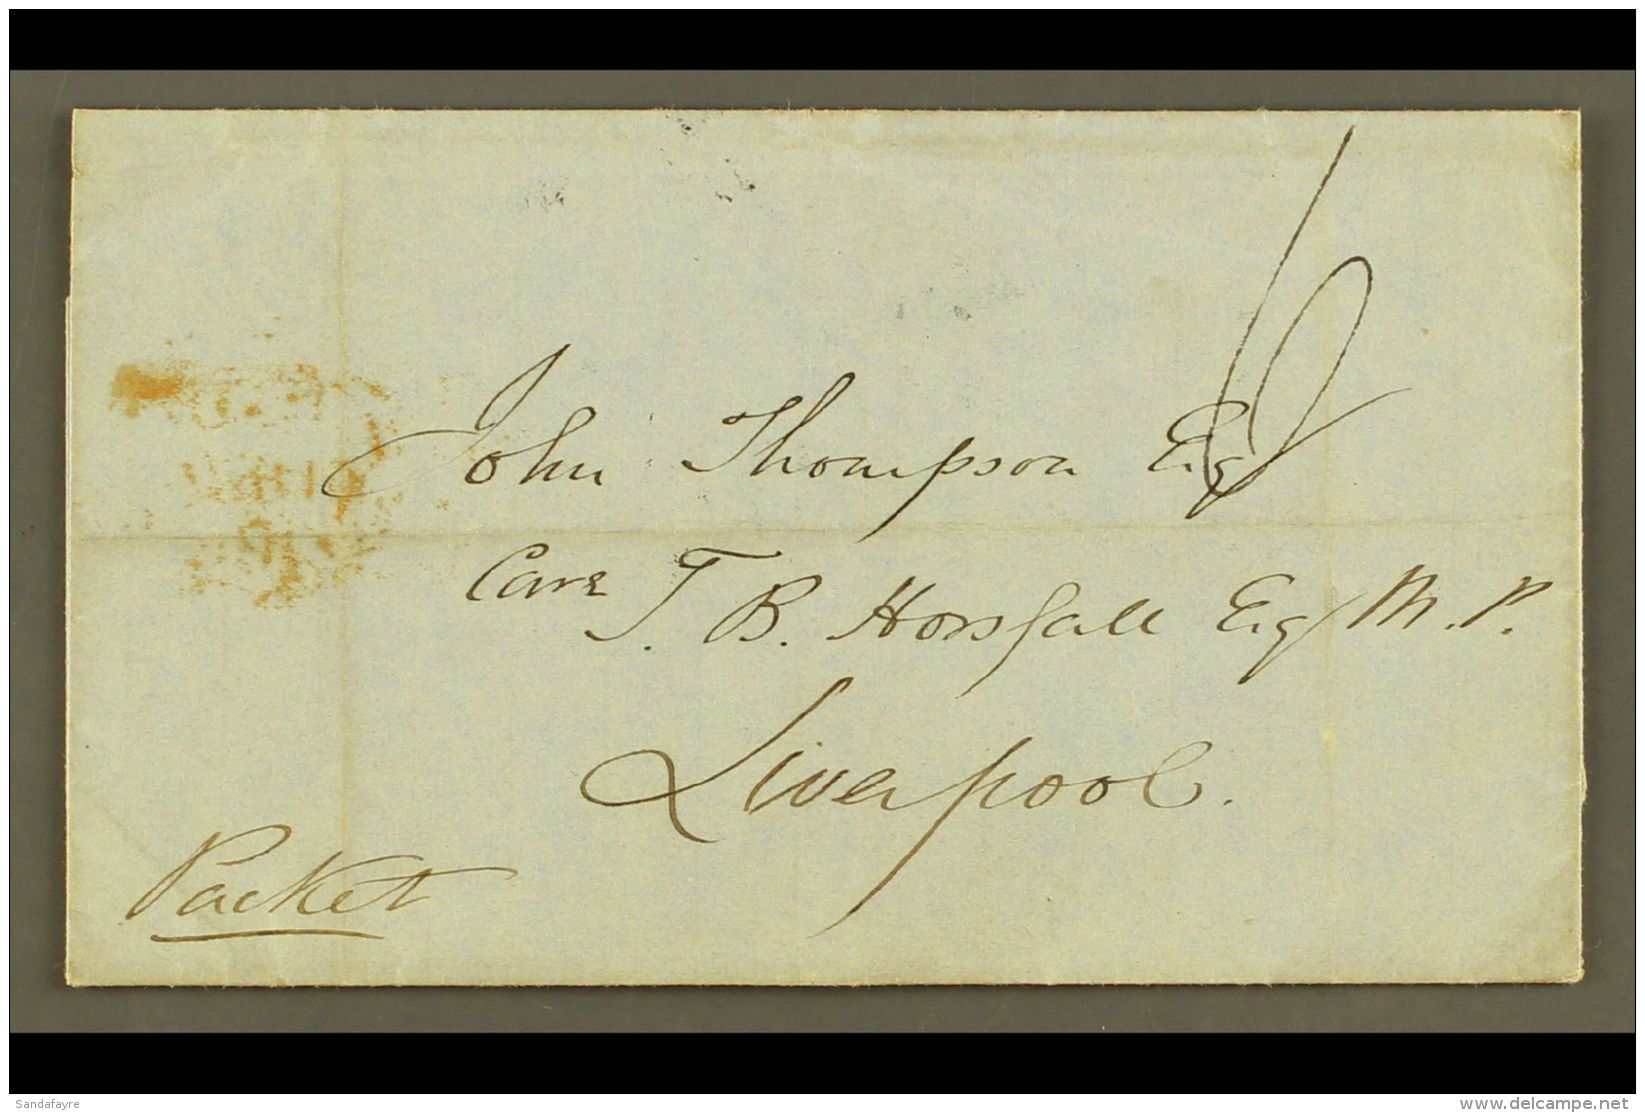 1/
John Thompson Esq
Care T. B. Horsfall Esq M.P.
Liverpool.
Packet
Sandafayre
www.delcampe.net